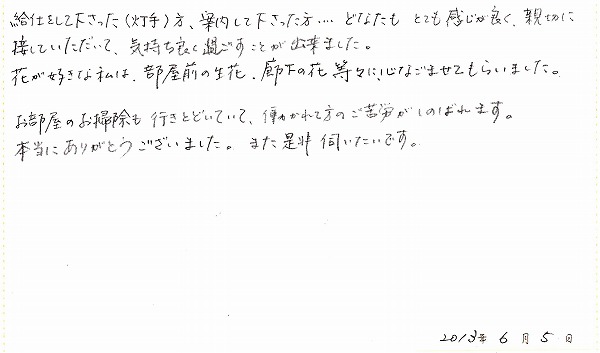 給仕をして下さった(灯手)方、案内して下さった方…. どなたも とても感じが良く、親切に
接していただいて、気持ち良く過ごすことが出来ました。
花が好きな私は、部屋前の生花、廊下の花 等々に心なごませてもらいました。
お部屋のお掃除も 行きとどいていて、働かれて方のご苦労がしのばれます。
本当にありがとうございました。 また是非 伺いたいです。
2013年 6月 5日